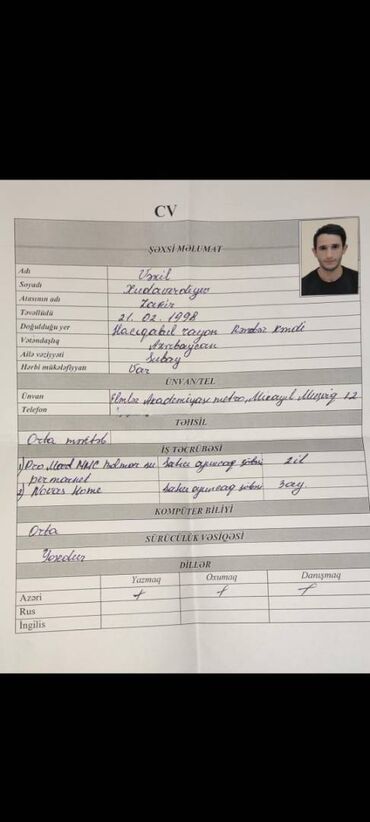 CV
ŞƏXSİ MƏLUMAT
Adı Vəkil
Soyadı Xudaverdiyev
Atasının adı Zakir
Təvəllüdü 21.02.1998
Doğulduğu yer Hacıqabul rayon kəndi
Vətəndaşlıq Azərbaycan
Ailə vəziyyəti Subay
Hərbi mükələfiyyən Var
ÜNVAN/TEL
Ünvan Elmlər Akademiyası metro, Mikayıl Müşviq 12
Telefon
TƏHSİL
Orta məktəb
İŞ TƏCRÜBƏSİ
1) MMC satıcı oyuncaq şöbəsi 2 il
permarket
2) Novas Home satıcı oyuncaq şöbəsi 3 ay
KOMPÜTER BİLİYİ
Orta
SÜRÜCÜLÜK VƏSİQƏSİ
Yoxdur
DİLLƏR
Yazmaq Oxumaq Danışmaq
Azəri + + +
Rus
İngilis